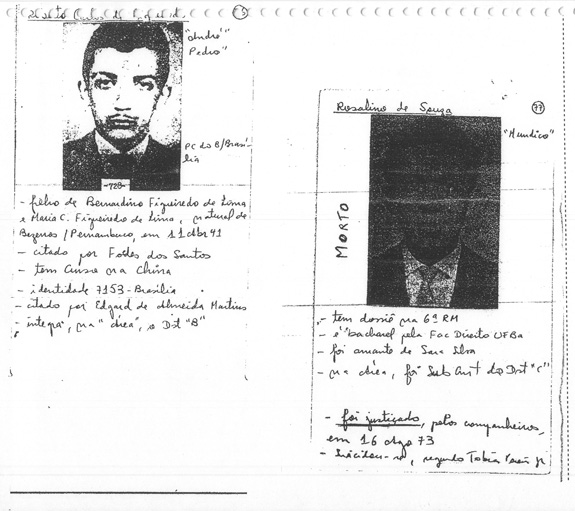 "André"
Pedro"
PC do B/Brasí-
lia
-728-
- filho de Bernardino Figueiredo de Lima
e Maria C. Figueiredo de Lima, natural de
Bezerros / Pernambuco, em 11 Abr 41
- citado por dos Santos
- tem curso na China
- identidade 7153-Brasília
- citado por Edgard de Almeida Martins
- integra, na "área", o Dst "B"
Rosalino de Souza
77
"Mundico"
MORTO
- tem dossiê na 6ª RM
- é bacharel pela Fac Direito UFBa
- foi amante de Sara
- na área, foi Sub Cmt do Dst "C"
- foi justiçado, pelos companheiros,
em 16 Ago 73
- Suicidou-se, segundo Tobias